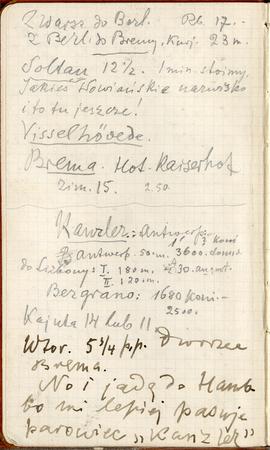 Z Warsz do Berl. Rb. 17.-
Z Berl. do Bremy, Kurj. 23 m.
Soltau 12½. 1 min. stoimy,
Jakieś słowiańskie nazwisko
i to tu jeszcze!
Visselhövede.
Brema. Hot. Kaiserhof
zim. 15. 2.50
Kanzler: Antwerp.
antwerp. 50. m. 3600.
do Lisbony: I. 180 m. 30. august.
II. 120 m.
Belgrano: 1680 koni.-
2500.
Kajuta 14 lub 11
Wtor. 5¾ p.p. Dworzec
Brema.
No i jadę do Hamb
bo mi lepiej pasuje
parowiec „Kanzler"